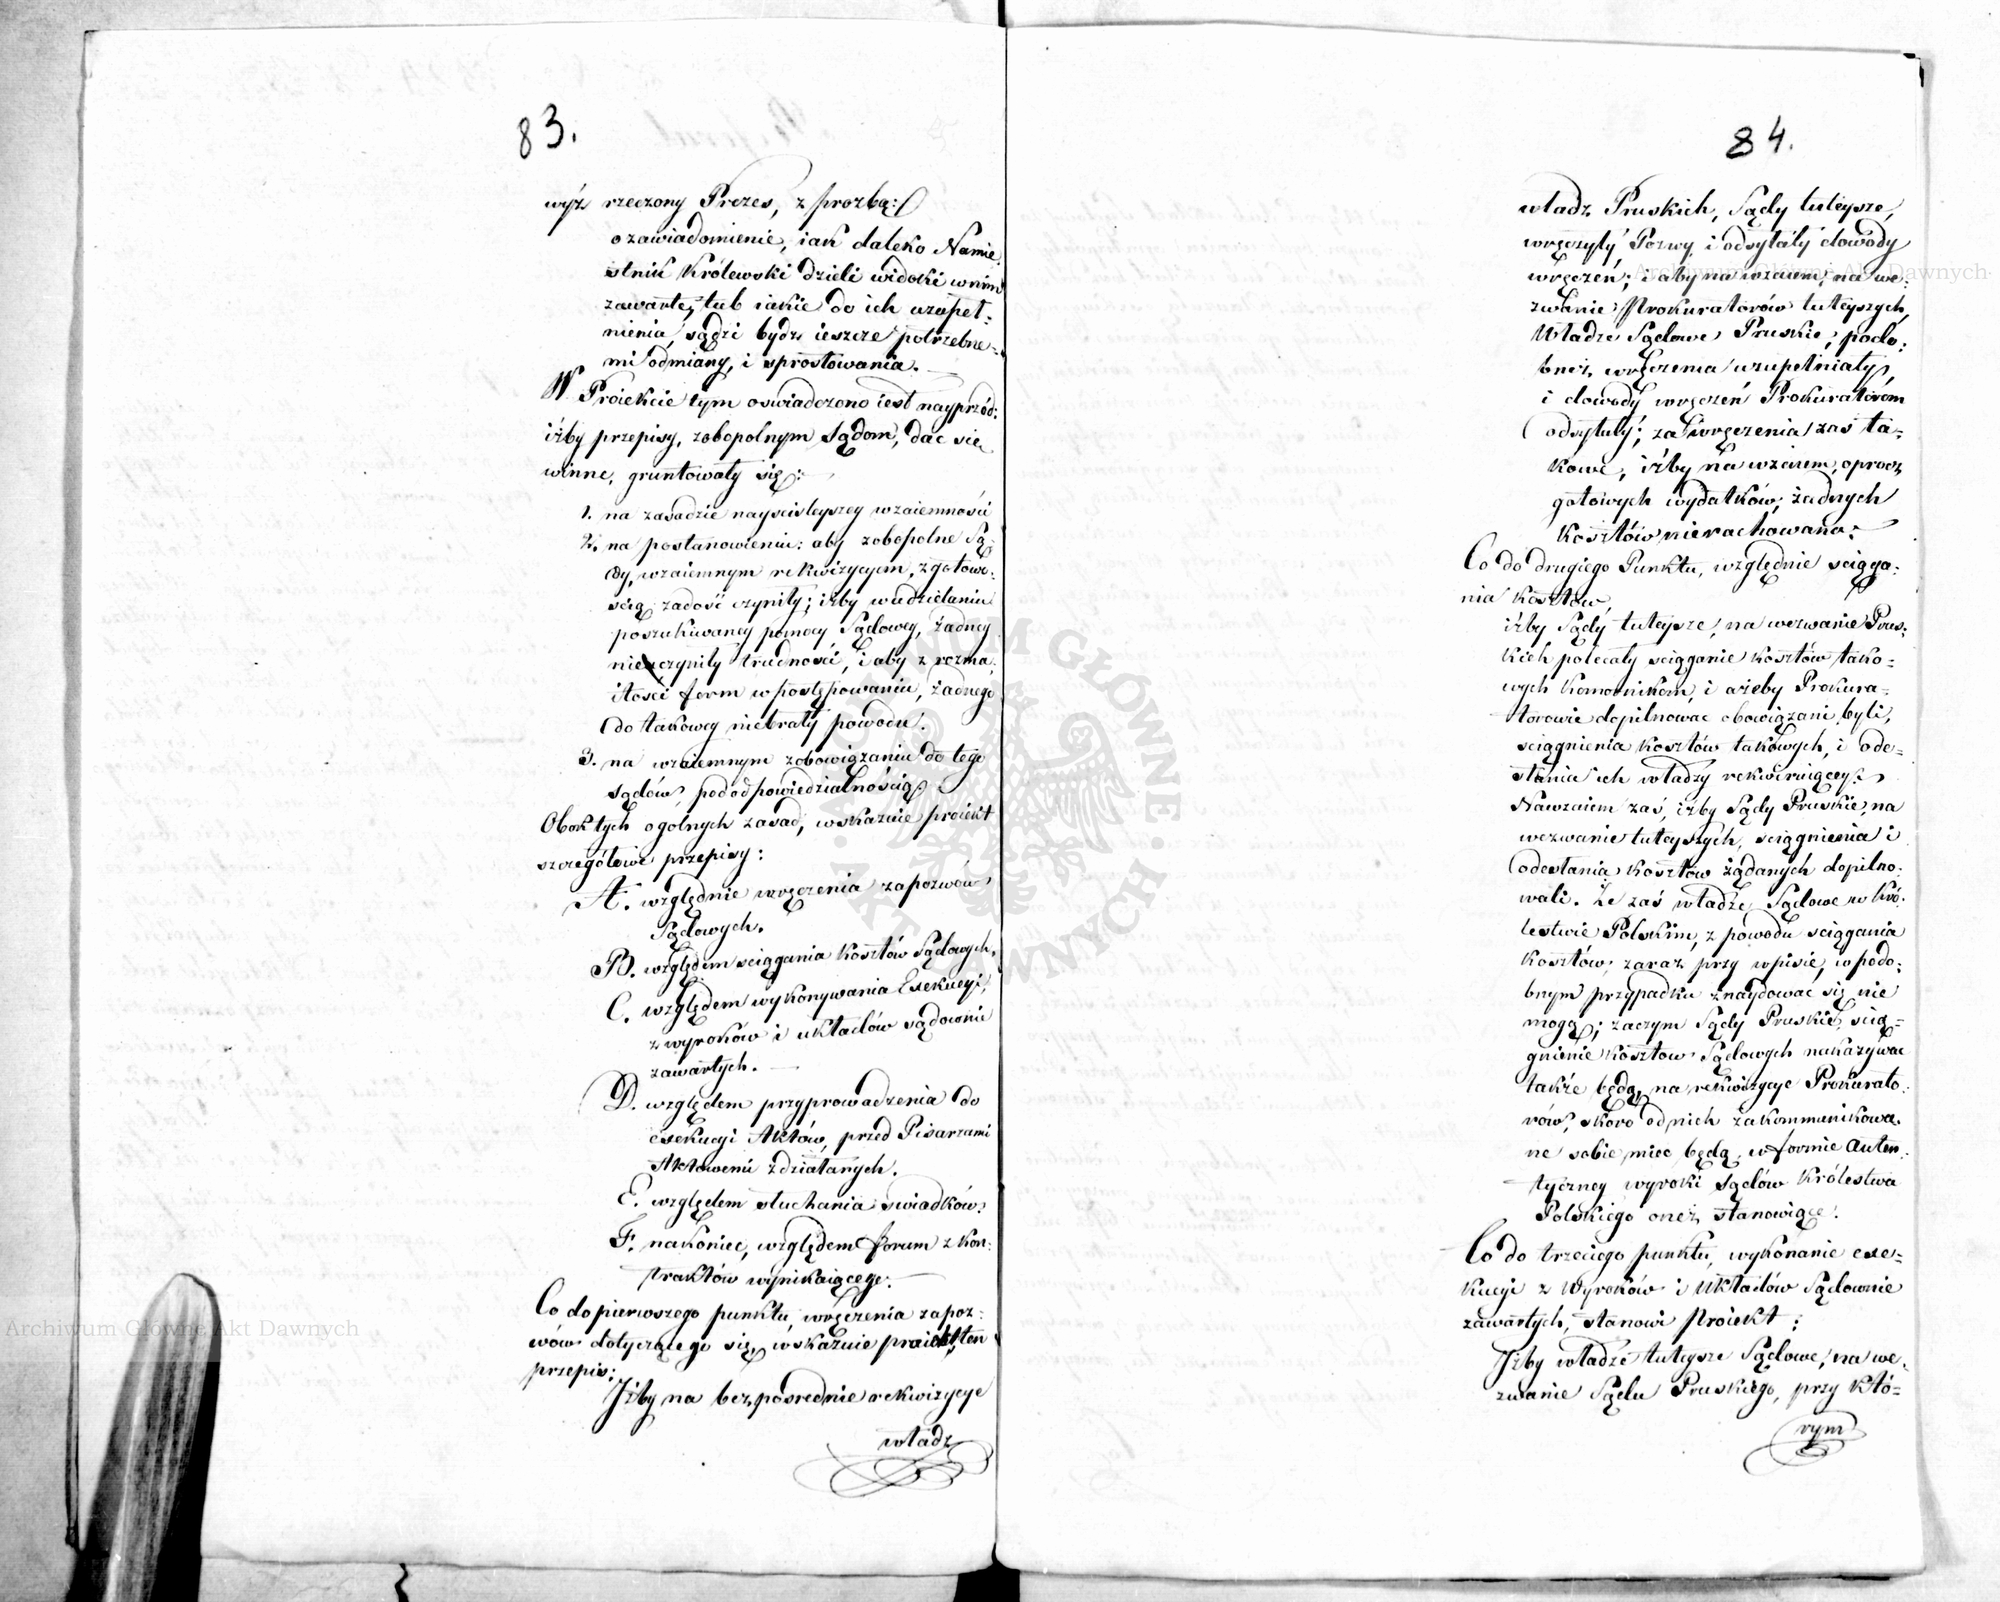 83.
wyż rzeczony Prezes, z prozbą:
o zawiadomienie, iak daleko Namie
stnik Królewski dzieli widoki w nim
zawarte, lub iakie do ich uzupeł:
nienia, sądzi bydz ieszcze potrzebne=
mi odmiany, i sprostowania. —
W Proiekcie tym oswiadczono iest nayprzód:
iżby przepisy, zobopolnym Sądom, dac się
winne, gruntowały się:
1. na zasadzie nayscisleyszey wzaiemności
2. na postanowieniu: aby zobopolne Są
dy, wzaiemnym rekwizycyom, z gotowo:
scią zadość czyniły; iżby w udzielaniu
poszukiwaney pomocy Sądowey, żadney
nie czyniły trudności, i aby z rozma
itości form w postępowaniu, żadnego
do takowey nie brały powodu.
3. na wzaiemnym zobowiązaniu do tego
sądów, pod odpowiedzialnością.
Obok tych ogolnych zasad, wskazuie proiekt
szczegółowe przepisy:
A. względnie wręczenia zapozwów
Sądowych.
B. względem sciągania kosztów Sądowych.
C. względem wykonywania Exekucyi,
z wyroków i układów sądownie
zawartych. —
D. względem przyprowadzenia do
exekucyi Aktów, przed Pisarzami
Aktowemi zdziałanych.
E. względem słuchania swiadków.
F. nakoniec, względem forum z kon:
traktów wynikaiącego. —
Co do pierwszego punktu, wręczenia zapoz:
wów dotyczącego się, wskazuie proiekt ten
przepis:
Iżby na bezpośrednie rekwizycye
władz
84.
władz Pruskich, Sądy tuteysze,
wręczyły Pozwy, i odsyłały dowody
wręczeń; i aby na wzaiem, na we:
zwanie Prokuratorów tuteyszych,
Władze Sądowe Pruskie, podo:
bnież, wręczenia uzupełniały,
i dowody wręczeń Prokuratorom
odsyłały; za wręczenia zaś ta=
kowe, iżby na wzaiem, oprocz
gotowych wydatków, żadnych
kosztów nierachowano.
Co do drugiego Punktu, względnie sciąga:
nia kosztów,
iżby Sądy tuteysze, na wezwanie Prus:
kich polecały sciąganie kosztów tako=
wych Komornikom, i ażeby Prokura=
torowie dopilnowac obowiązani byli,
sciągnienia kosztów takowych, i ode=
słania ich władzy rekwiruiącey.
Nawzaiem zaś, iżby Sądy Pruskie, na
wezwanie tuteyszych, sciągnienia i
odesłania kosztów żądanych dopilno.
wali. Że zaś władze Sądowe w Kró.
lestwie Polskim, z powodu sciągania
kosztów, zaraz przy wpisie, w podo:
bnym przypadku znaydować się nie
mogą; zaczym Sądy Pruskie, scią=
gnienie kosztow Sądowych nakazywac
także będą, na rekwizycye Prokurato.
rów, skoro od nich zakommunikowa.
ne sobie miec będą, w formie auten.
tyczney wyroki sądów Królestwa
Polskiego oneż stanowiące.
Co do trzeciego punktu, wykonanie exe=
kucyi z Wyroków i Układów Sądownie
zawartych, stanowi Proiekt:
Iżby władze tuteysze Sądowe, na we.
zwanie Sądu Pruskiego, przy któ=
rym
Archiwum Główne Akt Dawnych
Archiwum Główne Akt Dawnych
ARCHIWUM GŁÓWNE · AKT DAWNYCH ·